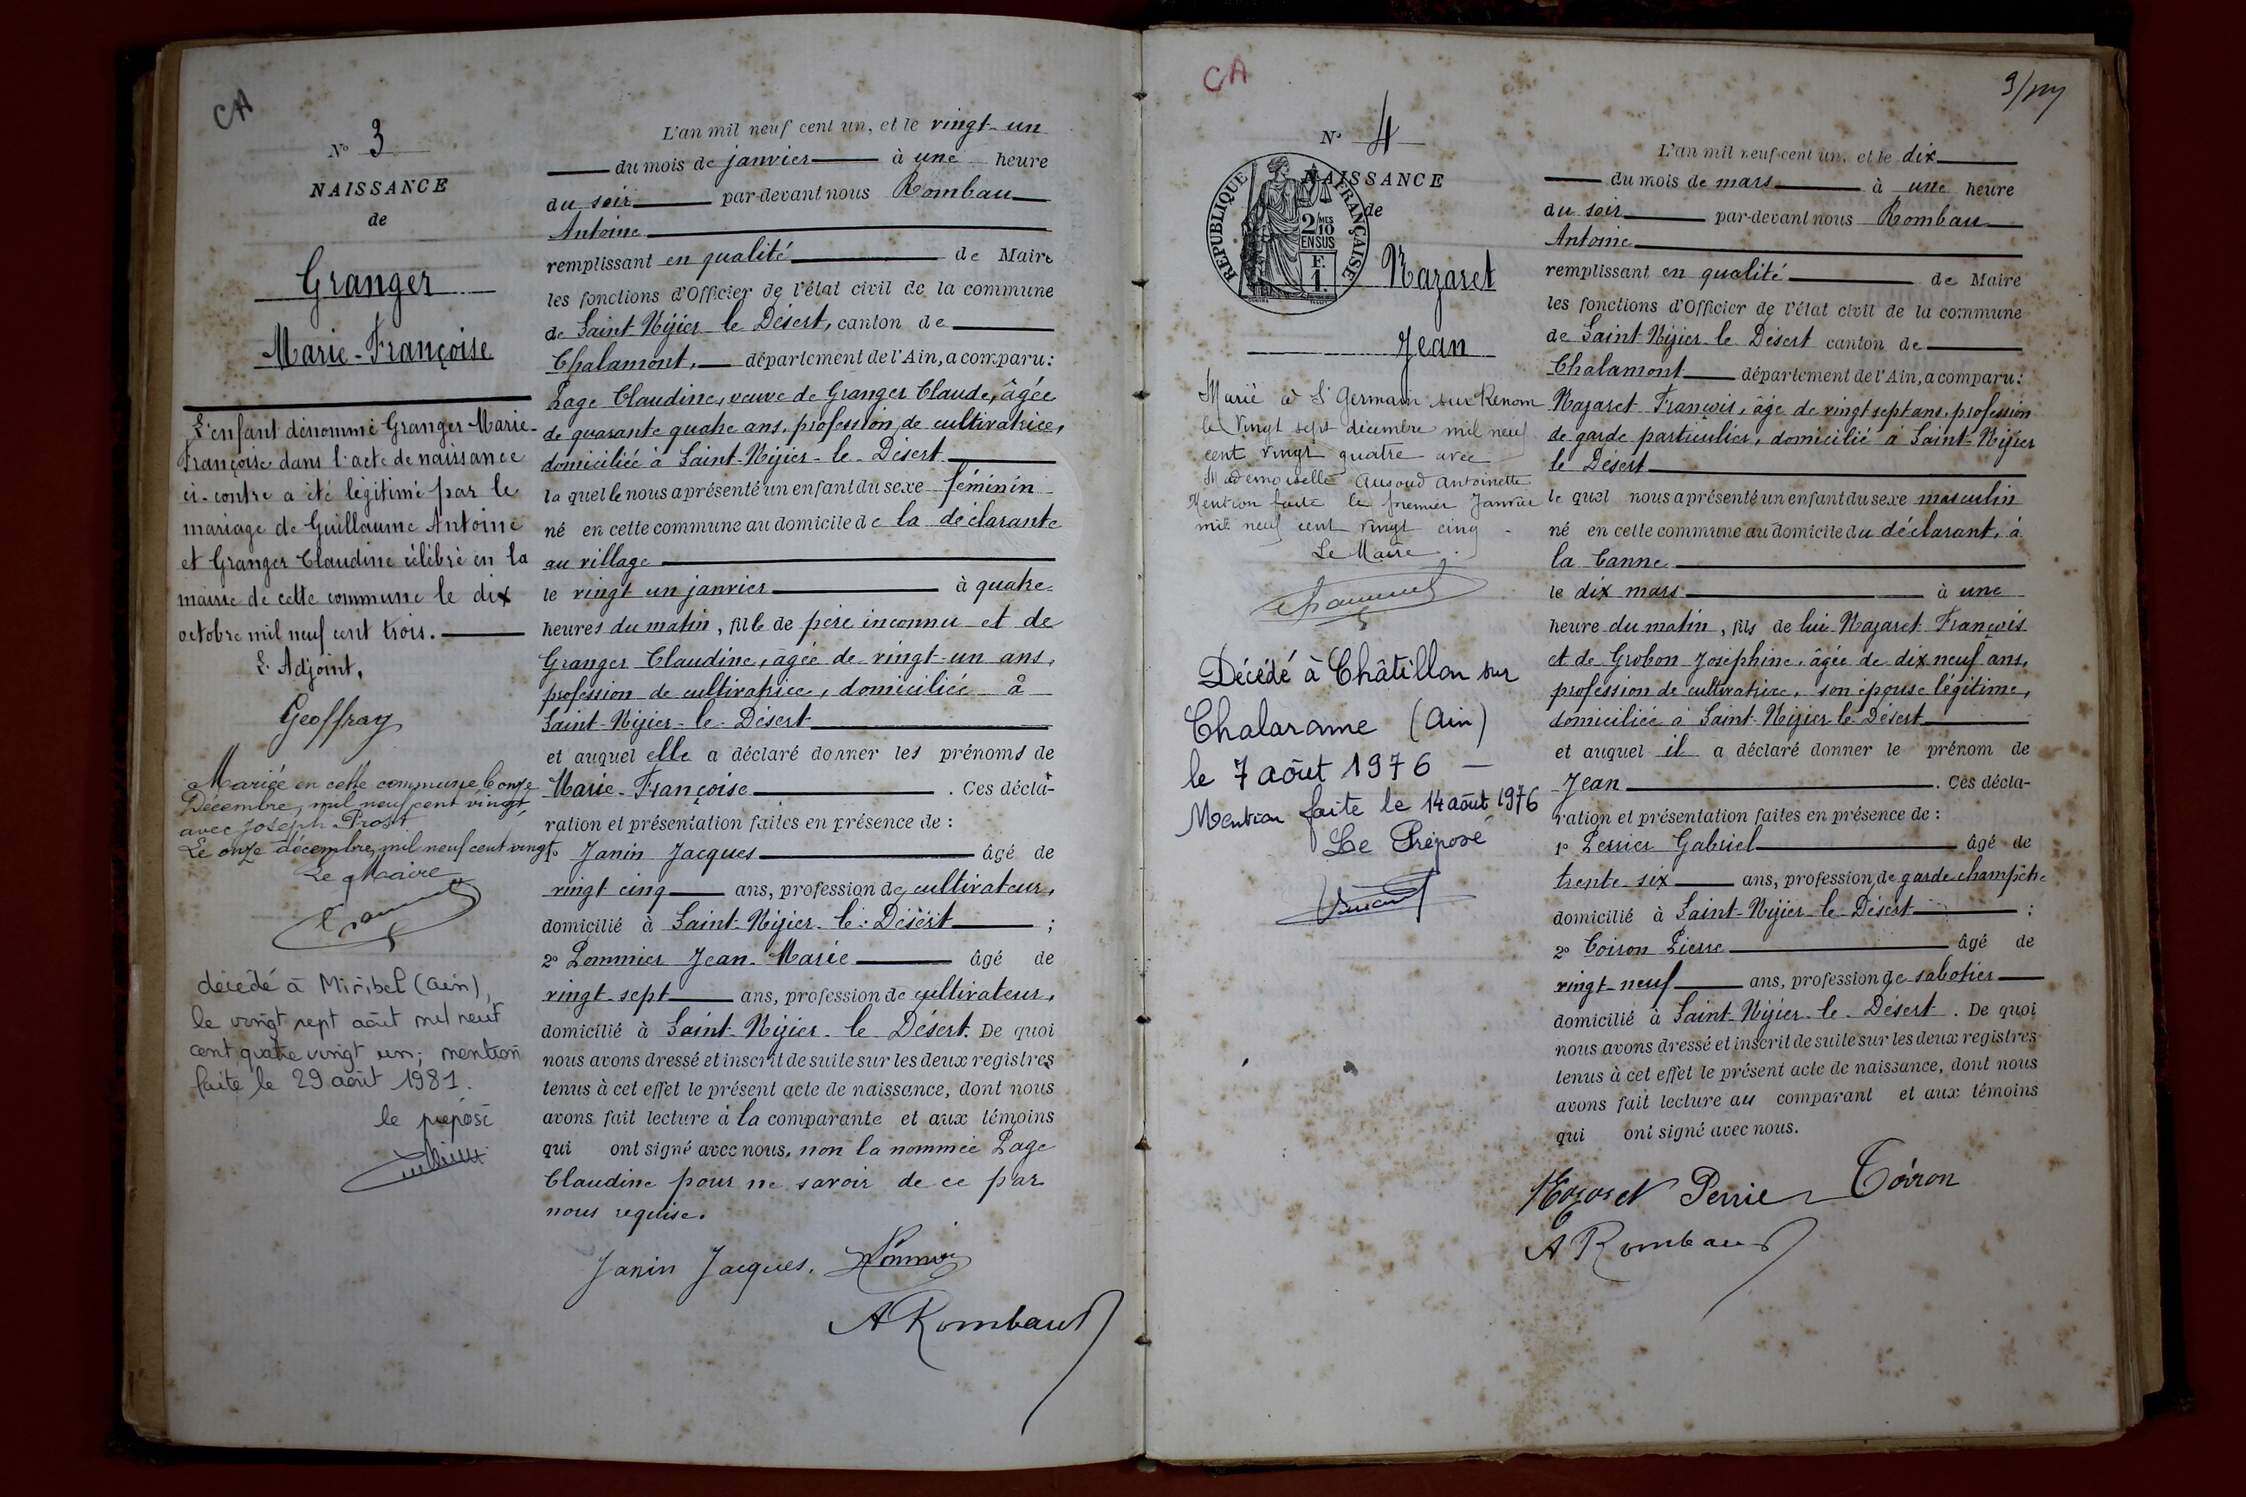 CA
N° 3
NAISSANCE
de
Granger
Marie-Françoise
L'enfant dénommé Granger Marie-
Françoise dans l'acte de naissance
ci-contre a été légitimé par le
mariage de Guillaume Antoine
et Granger Claudine célébré en la
mairie de cette commune le dix
octobre mil neuf cent trois.
L'Adjoint,
Geoffray
Mariée en cette commune, le onze
Décembre, mil neuf cent vingt,
avec Joseph Prost
Le onze décembre, mil neuf cent vingt
Le Maire
décédé à Miribel (Ain),
le vingt sept août mil neuf
cent quatre vingt un; mention
faite le 29 août 1981.
le préposé
L'an mil neuf cent un, et le vingt-un
du mois de janvier à une heure
du soir par-devant nous Rombau
Antoine
remplissant en qualité de Maire
les fonctions d'Officier de l'état civil de la commune
de Saint-Nizier-le Désert, canton de
Chalamont, département de l'Ain, a comparu:
Page Claudine, veuve de Granger Claude, âgée
de quarante quatre ans, profession de cultivatrice,
domiciliée à Saint-Nizier-le-Désert
la quelle nous a présenté un enfant du sexe féminin
né en cette commune au domicile de la déclarante
au village
le vingt un janvier à quatre
heures du matin, fille de père inconnu et de
Granger Claudine, âgée de vingt-un ans,
profession de cultivatrice, domiciliée à
Saint-Nizier-le-Désert
et auquel elle a déclaré donner les prénoms de
Marie-Françoise. Ces décla-
ration et présentation faites en présence de :
1° Janin Jacques âgé de
vingt cinq ans, profession de cultivateur,
domicilié à Saint-Nizier-le-Désert ;
2° Pommier Jean-Marie âgé de
vingt-sept ans, profession de cultivateur,
domicilié à Saint-Nizier-le Désert. De quoi
nous avons dressé et inscrit de suite sur les deux registres
tenus à cet effet le présent acte de naissance, dont nous
avons fait lecture à la comparante et aux témoins
qui ont signé avec nous, non la nommée Page
Claudine pour ne savoir de ce par
nous requise.
Janin Jacques, Pommier
A Rombaud
CA
9/
N° 4
NAISSANCE
de
RÉPUBLIQUE FRANÇAISE
2/MES
10
EN SUS
F.
1
Nazaret
Jean
Marié à St Germain sur Renom
le Vingt sept décembre mil neuf
cent vingt quatre avec
Mademoiselle Antoinette
Mention faite le premier Janvier
mil neuf cent vingt cinq
Le Maire.
Décédé à Châtillon sur
Chalarame (Ain)
le 7 août 1976 —
Mention faite le 14 août 1976
Le Préposé
L'an mil neuf cent un, et le dix
du mois de mars à une heure
du soir par-devant nous Rombau
Antoine
remplissant en qualité de Maire
les fonctions d'Officier de l'état civil de la commune
de Saint-Nizier-le Désert canton de
Chalamont département de l'Ain, a comparu:
Nazaret François, âgé de vingt sept ans, profession
de garde particulier, domicilié à Saint-Nizier
le Désert
le quel nous a présenté un enfant du sexe masculin
né en cette commune au domicile du déclarant, à
la Canne
le dix mars à une
heure du matin, fils de lui Nazaret François
et de Grobon Joséphine, âgée de dix neuf ans,
profession de cultivatrice, son épouse légitime,
domiciliée à Saint-Nizier-le-Désert
et auquel il a déclaré donner le prénom de
Jean. Ces décla-
ration et présentation faites en présence de :
1° Perrier Gabriel âgé de
trente-six ans, profession de garde champêtre
domicilié à Saint-Nizier-le-Désert ;
2° Coiron Pierre âgé de
vingt-neuf ans, profession de sabotier
domicilié à Saint-Nizier-le-Désert. De quoi
nous avons dressé et inscrit de suite sur les deux registres
tenus à cet effet le présent acte de naissance, dont nous
avons fait lecture au comparant et aux témoins
qui ont signé avec nous.
Nazaret Perrier Coiron
A Rombaud